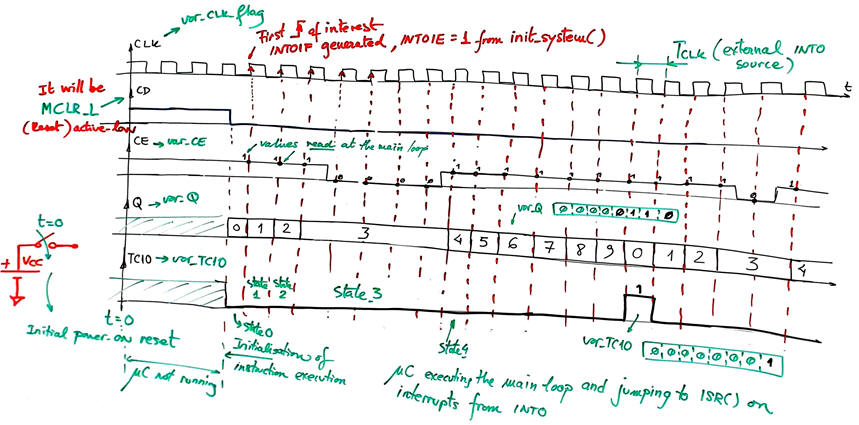 var_CLK flag
CLK
First of interest
INT0IF generated, INT0IE = 1 from init_system()
TCLK (external INT0
source)
t
It will be
MCLR_L
(Reset) active-low
CD
CE → var_CE
values read at the main loop
1 1 1 0 0 0 0 1 1 1 1 1 1 1 1 1 0 1
Q → var_Q
var_Q
0 0 0 0 0 1 1 0
0 1 2 3 4 5 6 7 8 9 0 1 2 3 4
t=0
+ VCC
TC10 → var_TC10
State 1
State 2
State_3
1
t=0
Initial power-on reset
State0
Initialisation of
instruction execution
state4
var_TC10
0 0 0 0 0 0 0 1
µC not running
µC executing the main loop and jumping to ISR() on
interrupts from INT0